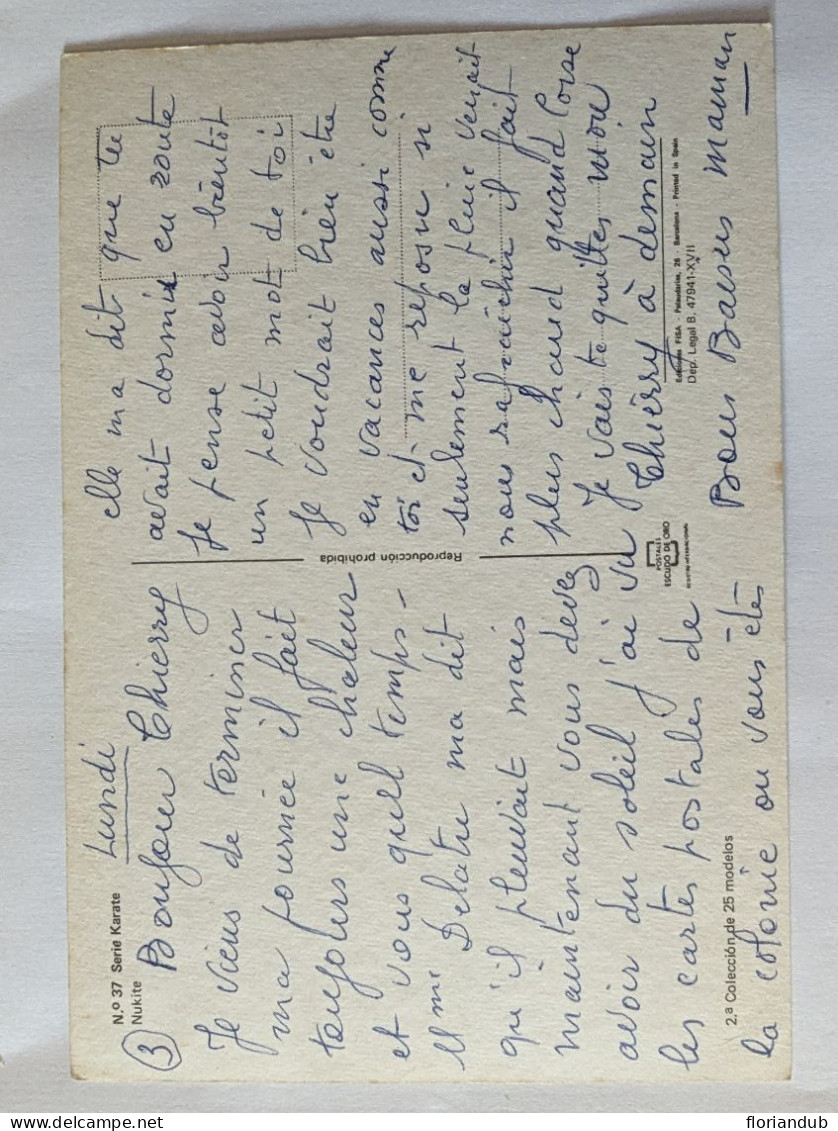 N.º 37 Serie Karate
Nukite
Lundi
3
Bonjour Thierry
Je viens de terminer
ma journée il fait
toujours une chaleur
et vous quel temps -
Mme Delatre ma dit
qu'il pleuvait mais
maintenant vous devez
avoir du soleil j'ai vu
les cartes postales de
la colonie ou vous êtes
2.ª Colección de 25 modelos
elle ma dit que tu
avait dormir en route
Je pense avoir bientôt
un petit mot de toi
Je voudrait bien être
en vacances aussi comme
toi et me reposu si
seulement la pluie venait
nous rafraichir il fait
plus chaud quand Corse
Je vais te quitter mon
Thierry à demain
Bons Baisers maman
Reproducción prohibida
POSTALES
ESCUDO DE ORO
Ediciones FISA - Palaudarias, 26 - Barcelona - Printed in Spain
Dep. Legal B. 47941-XVII
floriandub